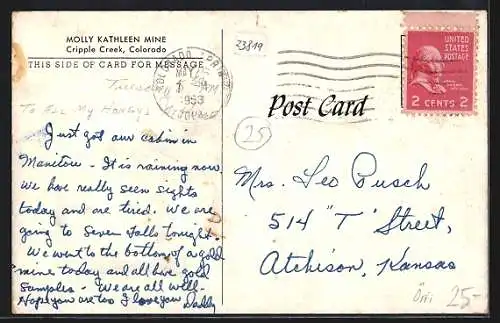 MOLLY KATHLEEN MINE
Cripple Creek, Colorado
THIS SIDE OF CARD FOR MESSAGE
Tuesday
To All My Honeys
Just got our cabin in
Manitou - It is raining now.
We have really seen sights
today and are tired. We are
going to Seven Falls tonight.
We went to the bottom of a gold
mine today and all have gold
samples - We are all well -
Hope you are too I love you Daddy
23819
COLORADO SPRINGS
MAY
1953
COLORADO
UNITED
STATES
POSTAGE
2 CENTS 2
Post Card
25
Mrs. Leo Busch
514 "T" Street,
Atchison, Kansas
25-